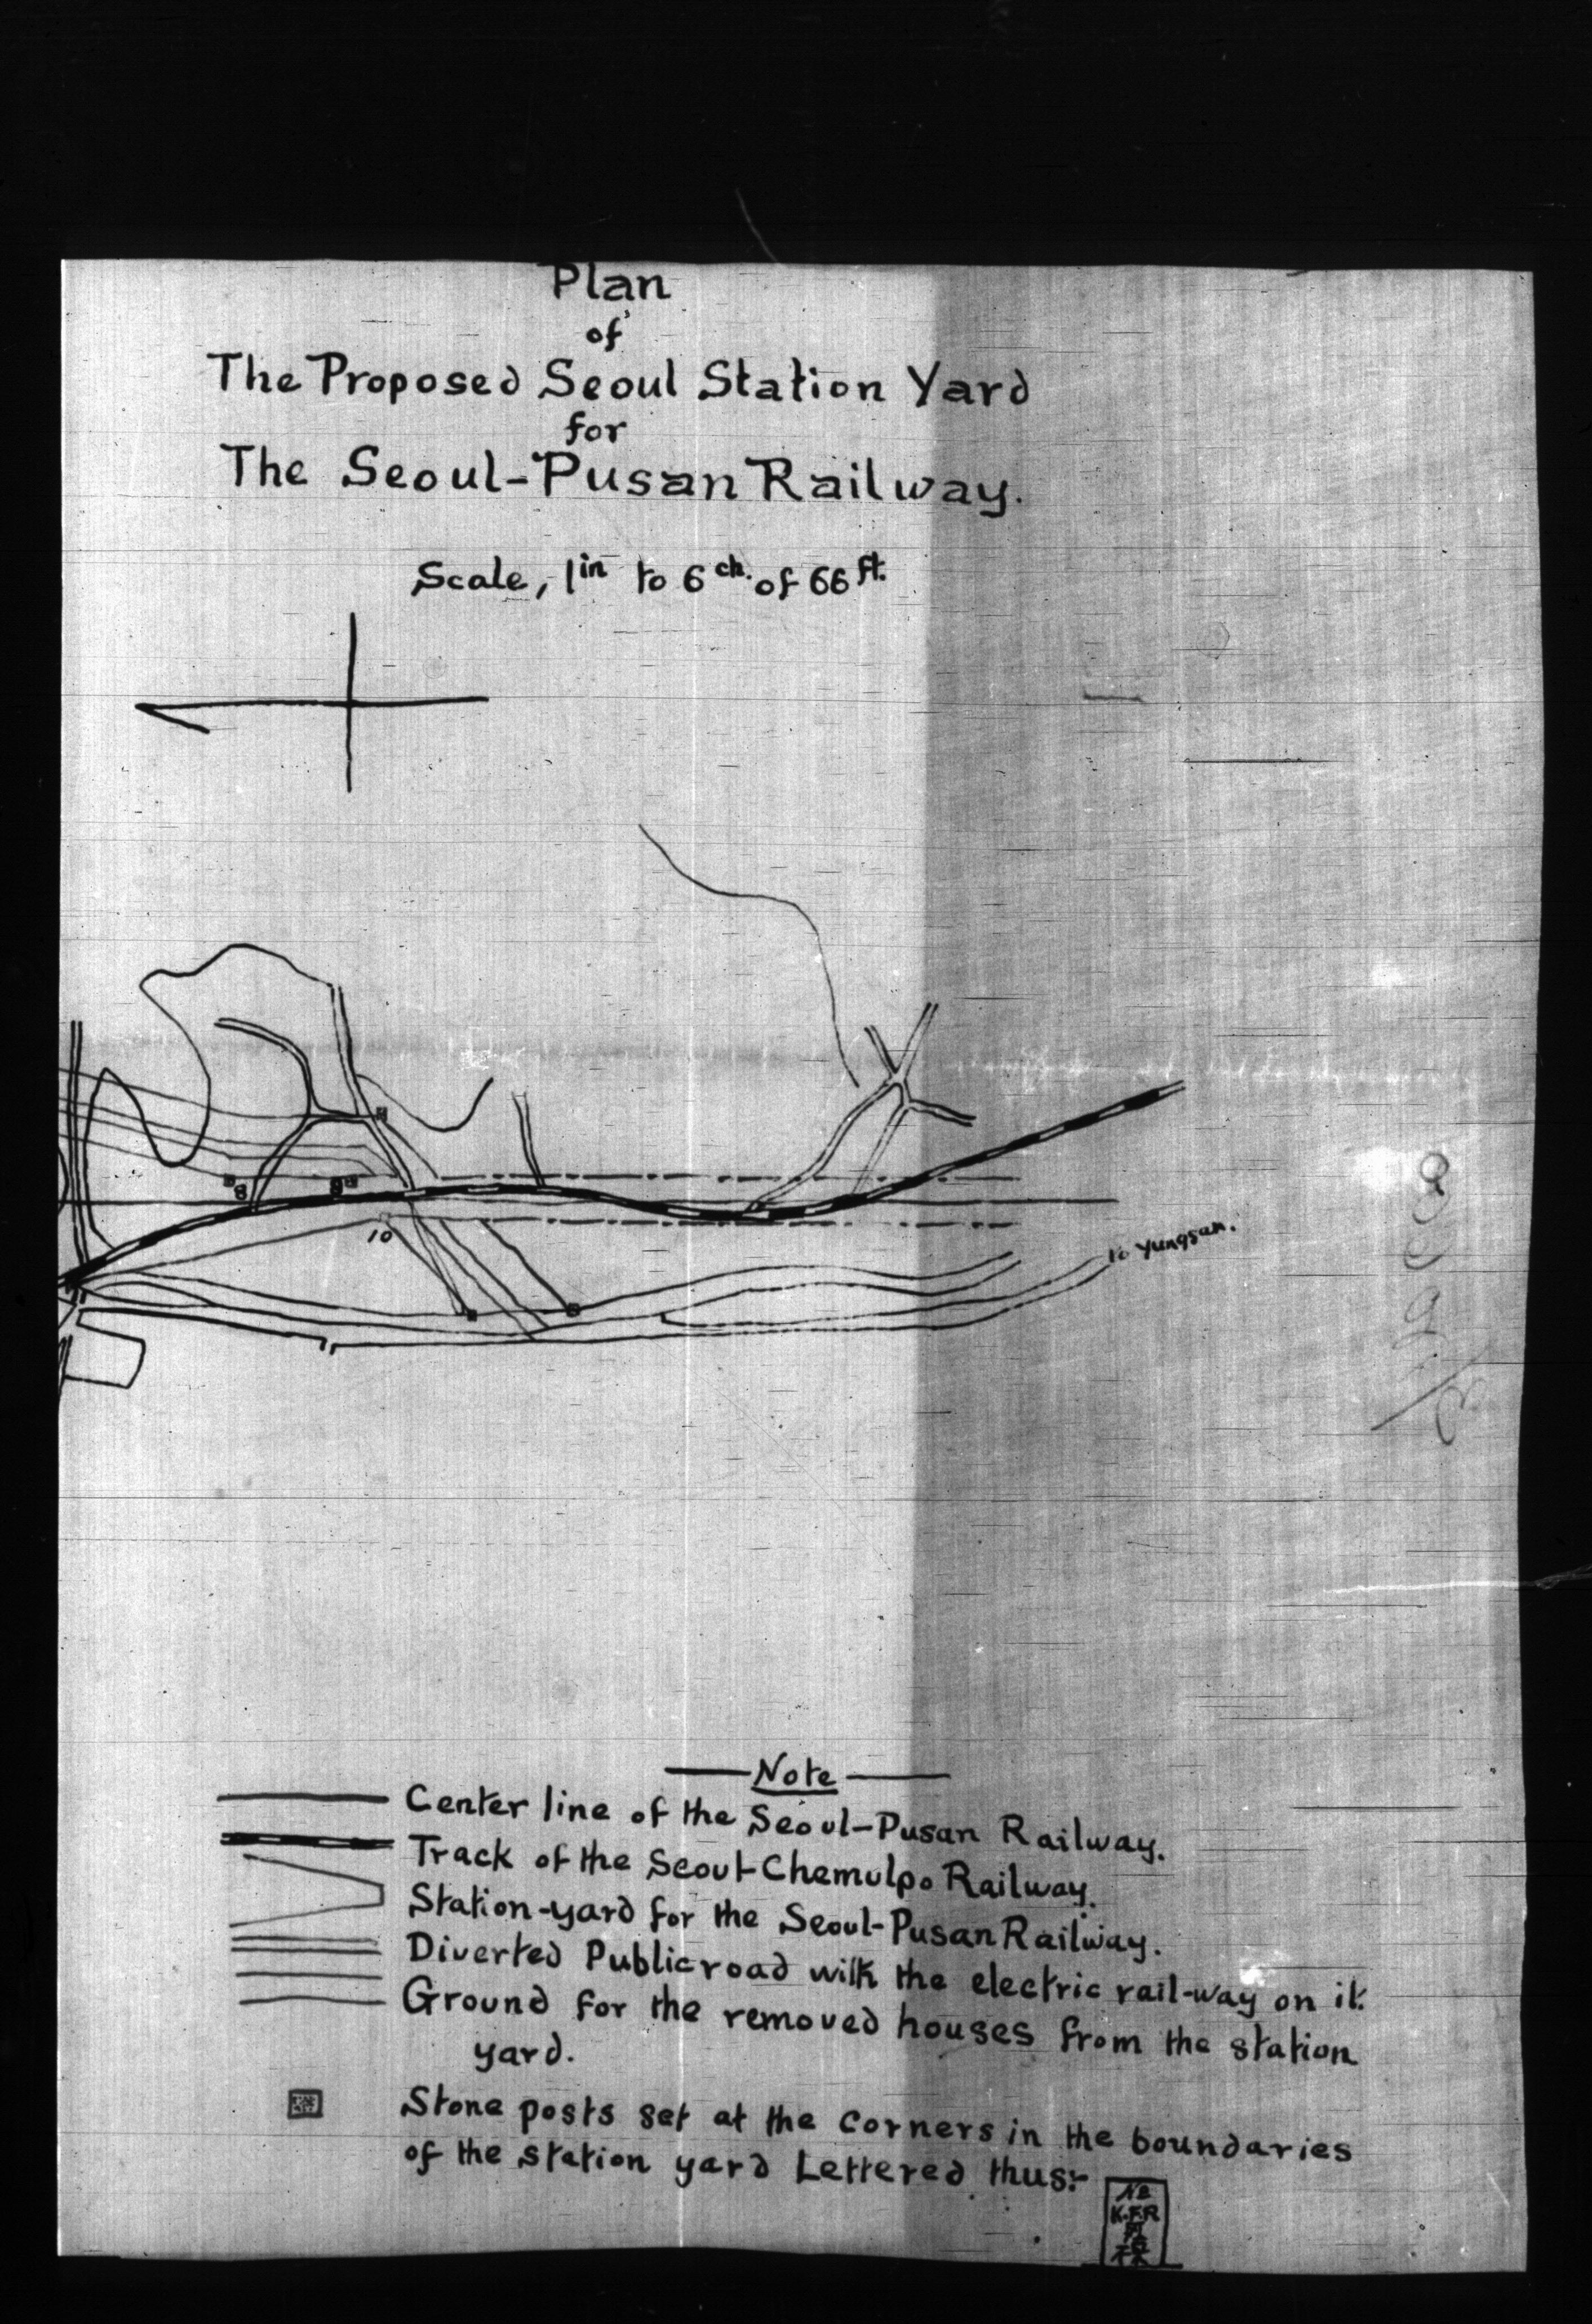 Plan
of
The Proposed Seoul Station Yard
for
The Seoul-Pusan Railway.
Scale, 1in to 6 ch. of 66 ft.
8
9
10
to Yungsan.
Note
Center line of the Seoul-Pusan Railway.
Track of the Seoul-Chemulpo Railway.
Station-yard for the Seoul-Pusan Railway.
Diverted Public road with the electric rail-way on it.
Ground for the removed houses from the station
yard.
Stone posts set at the corners in the boundaries
of the station yard Lettered thus:-
No
K.F.R